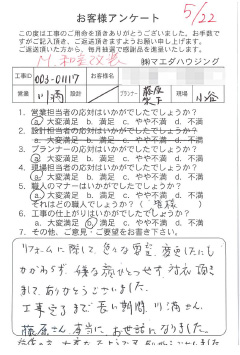 お客様アンケート
5/22
この度は工事のご用命を頂きありがとうございました。お手数で
すがご記入頂き、ご返送頂きますようお願い申し上げます。
ご返送頂いた方から、毎月抽選で感謝品を進呈いたします。
㈱マエダハウジング
工事ID 003-01117 お客様名
営業 川満 設計 プランナー 藤原 現場 小谷
1. 営業担当者の応対はいかがでしたでしょうか?
a. 大変満足 b. 満足 c. やや不満 d. 不満
2. 設計担当者の応対はいかがでしたでしょうか?
a. 大変満足 b. 満足 c. やや不満 d. 不満
3. プランナーの応対はいかがでしたでしょうか?
a. 大変満足 b. 満足 c. やや不満 d. 不満
4. 現場担当者の応対はいかがでしたでしょうか?
a. 大変満足 b. 満足 c. やや不満 d. 不満
5. 職人のマナーはいかがでしたでしょうか?
a. 大変満足 b. 満足 c. やや不満 d. 不満
それはどの職人でしょうか?( 皆様 )
6. 工事の仕上がりはいかがでしたでしょうか?
a. 大変満足 b. 満足 c. やや不満 d. 不満
7. その他、ご意見・ご要望をお書き下さい。
リフォームに際して、色々な要望、変更したにも
かかわらず、嫌な顔ひとつせず対応頂き
ましてありがとうございました。
工事完了まで長い期間、川満さん、
藤原さん本当にお世話になりました。